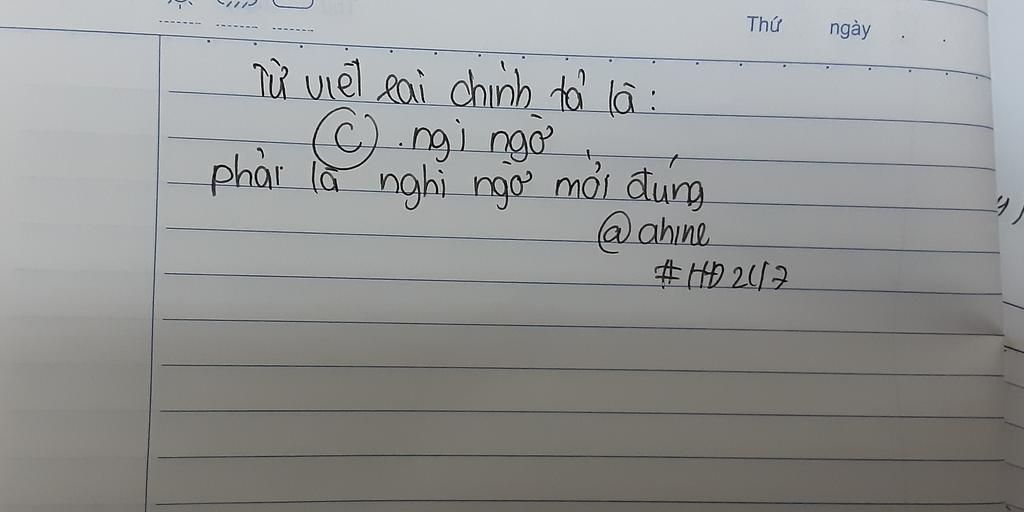 Thứ ngày . .
Từ viết sai chính tả là:
C . ngi ngờ
phải là nghi ngờ mới đúng
@ahine
#HD2K7